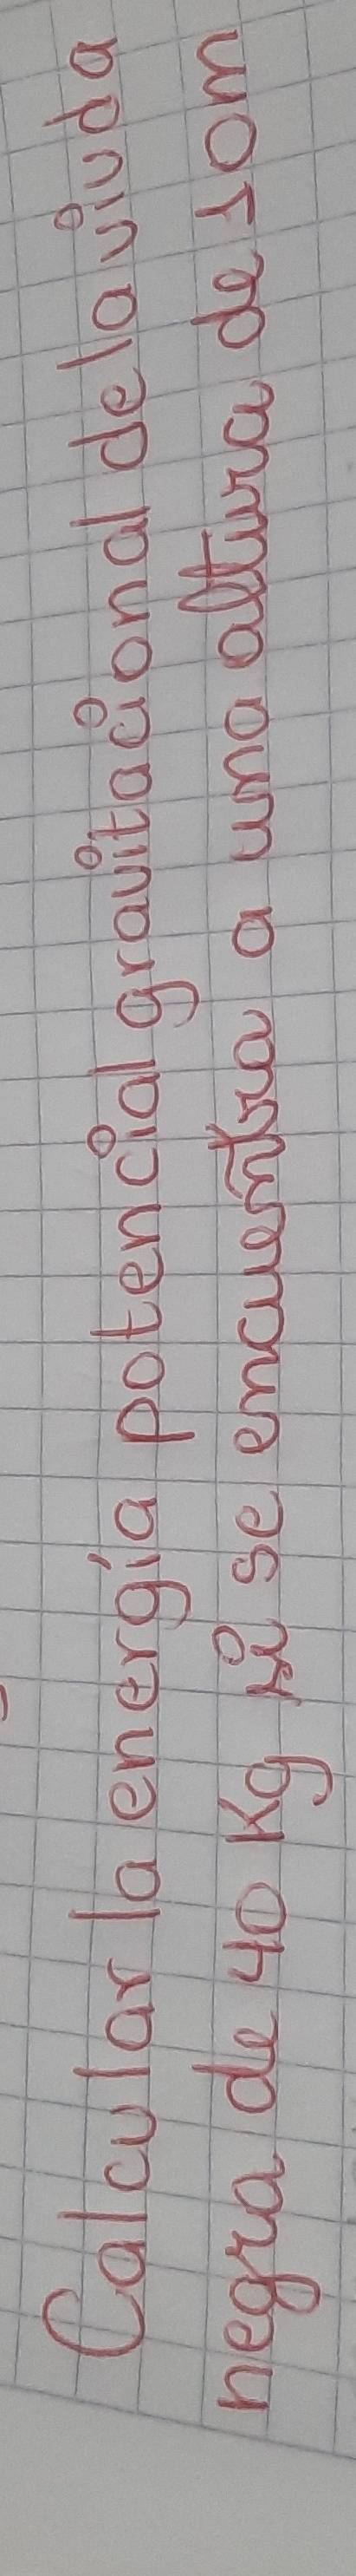 Calcular la energía potencial gravitacional de la viuda
negra de 40 Kg si se encuentra a una altura de 10m